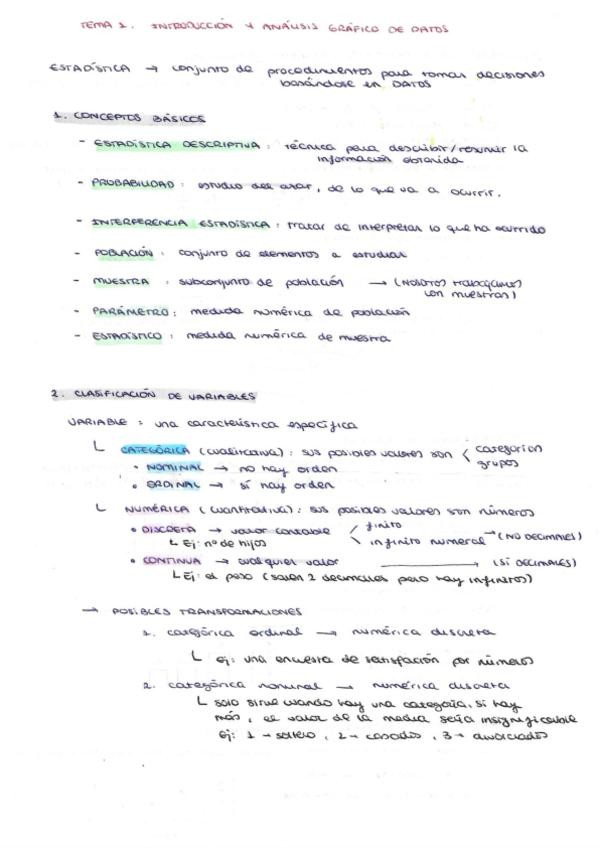 TEMA 1. INTRODUCCIÓN Y ANÁLISIS GRÁFICO DE DATOS
ESTADÍSTICA → conjunto de procedimientos para tomar decisiones
basándose en DATOS
1. CONCEPTOS BÁSICOS
- ESTADÍSTICA DESCRIPTIVA : técnica para describir/resumir la
información obtenida
- PROBABILIDAD : estudio del azar, de lo que va a ocurrir.
- INTERFERENCIA ESTADÍSTICA : tratar de interpretar lo que ha ocurrido
- POBLACIÓN : conjunto de elementos a estudiar
- MUESTRA : subconjunto de población → (nosotros trabajamos
con muestras)
- PARÁMETRO : medida numérica de población
- ESTADÍSTICO : medida numérica de muestra
2. CLASIFICACIÓN DE VARIABLES
VARIABLE : una característica específica
└ CATEGÓRICA (cualitativa) : sus posibles valores son < categorías
grupos
• NOMINAL → no hay orden
• ORDINAL → sí hay orden
└ NUMÉRICA (cuantitativa) : sus posibles valores son números
• DISCRETA → valor contable / finito
\ infinito numeral → (NO DECIMALES)
└ Ej: nº de hijos
• CONTINUA → cualquier valor → (SÍ DECIMALES)
└ Ej: el peso (salen 2 decimales pero hay infinitos)
→ POSIBLES TRANSFORMACIONES
1. categórica ordinal → numérica discreta
└ ej: una encuesta de satisfacción por números
2. categórica nominal → numérica discreta
└ solo sirve cuando hay una categoría, si hay
más, el valor de la media sería insignificable
ej: 1 → soltero, 2 → casados, 3 → divorciados